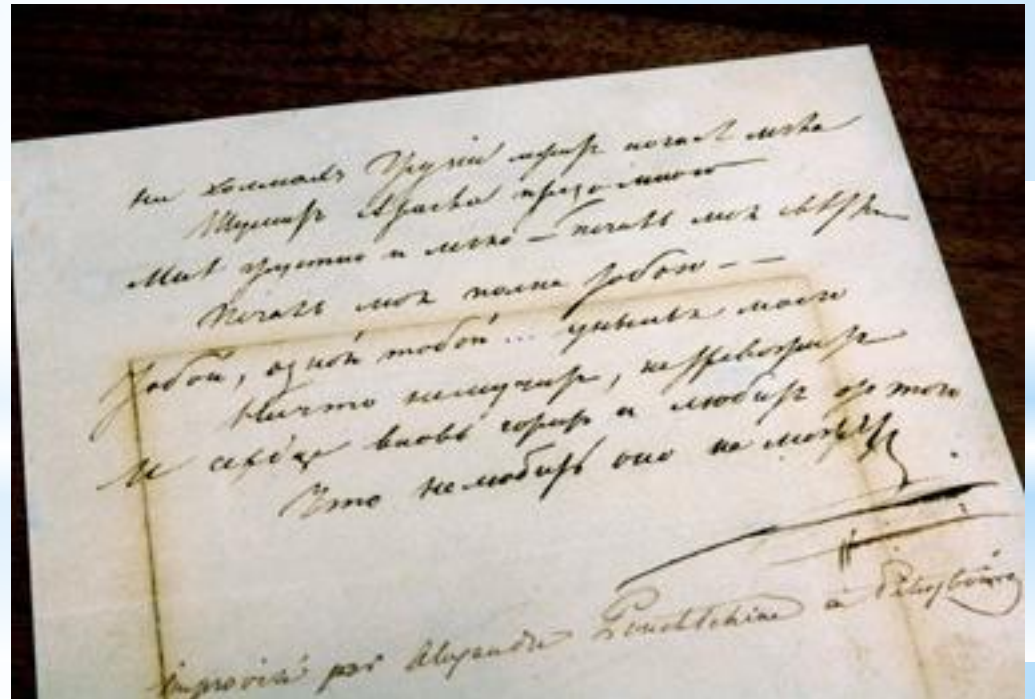 на холмахъ Грузіи лежит ночная мгла
Шумит Арагва предо мной
Мнѣ грустно и легко — печаль моя свѣтла
Печаль моя полна тобою — —
Тобой, одной тобой ... унынья моего
Ничто немучит, нетревожит
И сердце вновь горит и любит от того
Что нелюбить оно не может.
Improvisé par Alexandre Pouchtchine à Pétersbourg